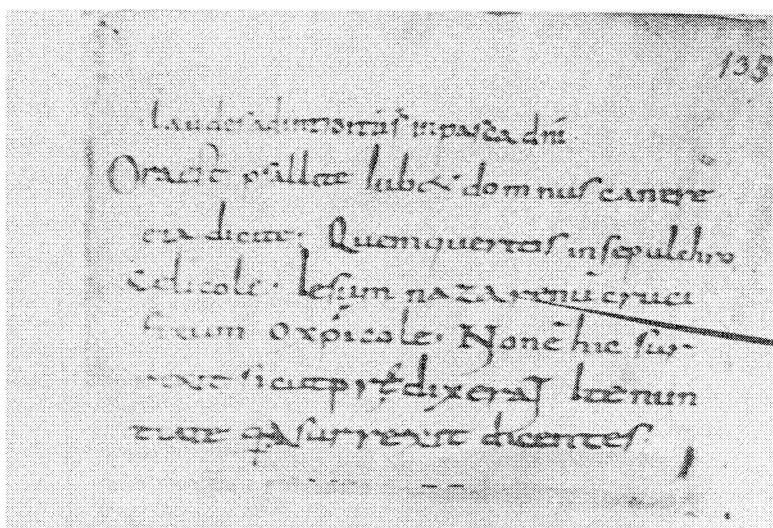 135
Laudes ad introitū in pasca dnī
Ora est psallite Iub& domnus canere
eia dicite. Quem queritis in sepulchro
celicole. Iesum nazarenū cruci
fixum o xpīcole. Non ē hic sur
rexit sicut p dixerat Ite nun
tiate q̣a surrexit dicentes.